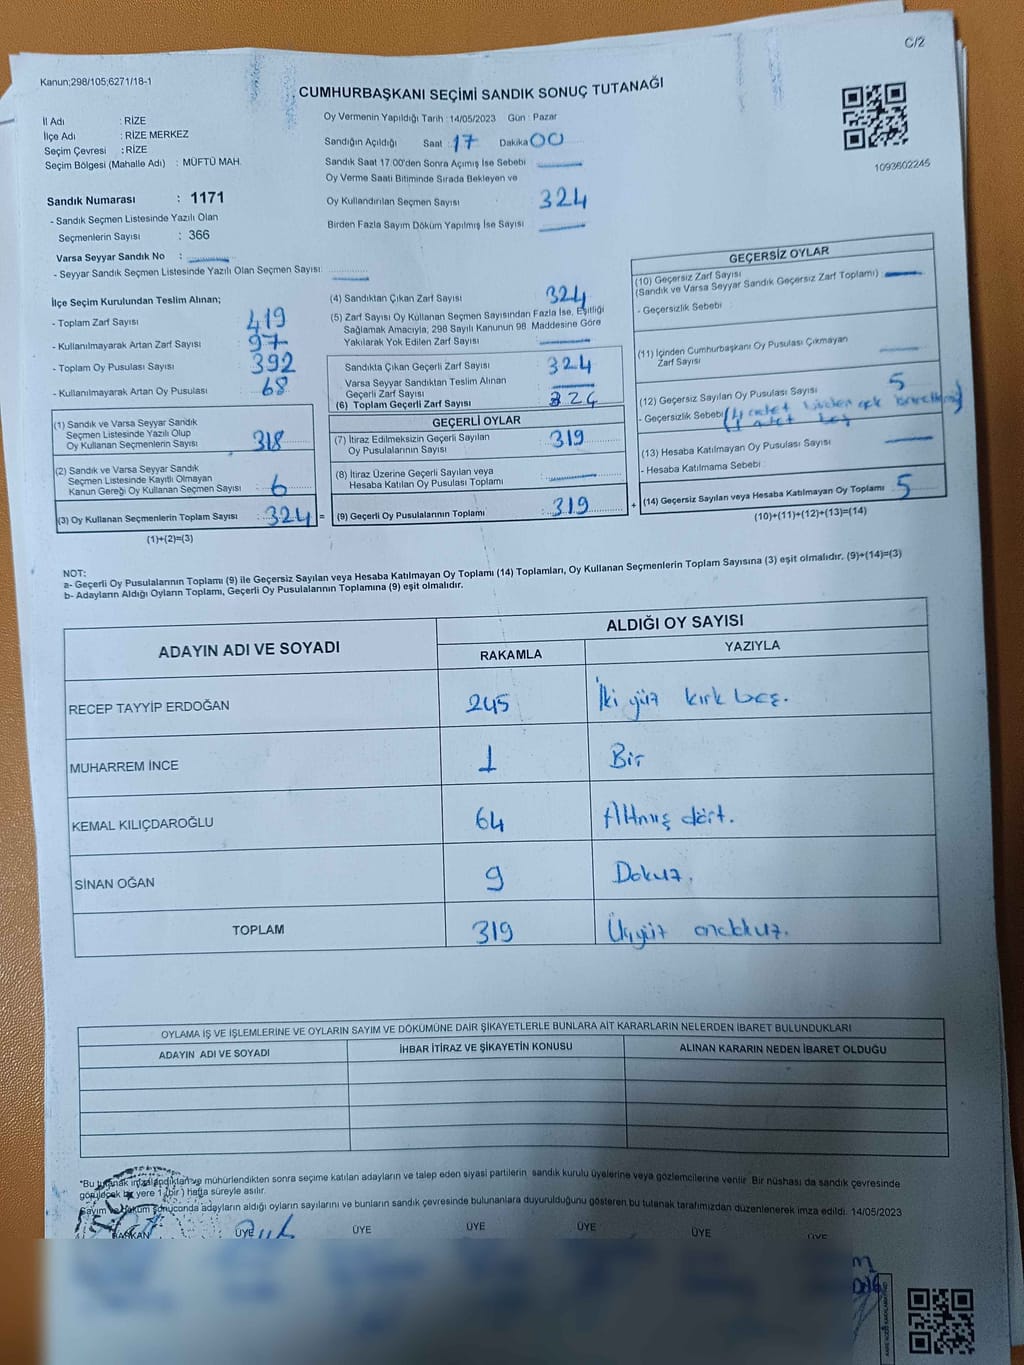 C/2
Kanun;298/105;6271/18-1
CUMHURBAŞKANI SEÇİMİ SANDIK SONUÇ TUTANAĞI
İl Adı : RİZE
İlçe Adı : RİZE MERKEZ
Seçim Çevresi : RİZE
Seçim Bölgesi (Mahalle Adı) : MÜFTÜ MAH.
Oy Vermenin Yapıldığı Tarih :14/05/2023 Gün : Pazar
Sandığın Açıldığı Saat : 17 Dakika 00
Sandık Saat 17:00'den Sonra Açımış İse Sebebi
Oy Verme Saati Bitiminde Sırada Bekleyen ve
Oy Kullandırılan Seçmen Sayısı 324
Birden Fazla Sayım Döküm Yapılmış İse Sayısı
1093602245
Sandık Numarası : 1171
- Sandık Seçmen Listesinde Yazılı Olan
Seçmenlerin Sayısı : 366
Varsa Seyyar Sandık No :
- Seyyar Sandık Seçmen Listesinde Yazılı Olan Seçmen Sayısı:
İlçe Seçim Kurulundan Teslim Alınan;
- Toplam Zarf Sayısı 419
- Kullanılmayarak Artan Zarf Sayısı 97
- Toplam Oy Pusulası Sayısı 392
- Kullanılmayarak Artan Oy Pusulası 68
(1) Sandık ve Varsa Seyyar Sandık
Seçmen Listesinde Yazılı Olup
Oy Kullanan Seçmenlerin Sayısı 318
(2) Sandık ve Varsa Seyyar Sandık
Seçmen Listesinde Kayıtlı Olmayan
Kanun Gereği Oy Kullanan Seçmen Sayısı 6
(3) Oy Kullanan Seçmenlerin Toplam Sayısı 324 =
(1)+(2)=(3)
(4) Sandıktan Çıkan Zarf Sayısı 324
(5) Zarf Sayısı Oy Kullanan Seçmen Sayısından Fazla İse, Eşitliği
Sağlamak Amacıyla, 298 Sayılı Kanunun 98. Maddesine Göre
Yakılarak Yok Edilen Zarf Sayısı
Sandıkta Çıkan Geçerli Zarf Sayısı 324
Varsa Seyyar Sandıktan Teslim Alınan
Geçerli Zarf Sayısı
(6) Toplam Geçerli Zarf Sayısı 324
GEÇERLİ OYLAR
(7) İtiraz Edilmeksizin Geçerli Sayılan
Oy Pusulalarının Sayısı 319
(8) İtiraz Üzerine Geçerli Sayılan veya
Hesaba Katılan Oy Pusulası Toplamı
(9) Geçerli Oy Pusulalarının Toplamı 319 +
GEÇERSİZ OYLAR
(10) Geçersiz Zarf Sayısı
(Sandık ve Varsa Seyyar Sandık Geçersiz Zarf Toplamı)
- Geçersizlik Sebebi :
(11) İçinden Cumhurbaşkanı Oy Pusulası Çıkmayan
Zarf Sayısı
(12) Geçersiz Sayılan Oy Pusulası Sayısı 5
- Geçersizlik Sebebi (4 adet birden çok
1 adet boş
(13) Hesaba Katılmayan Oy Pusulası Sayısı
- Hesaba Katılmama Sebebi :
(14) Geçersiz Sayılan veya Hesaba Katılmayan Oy Toplamı 5
(10)+(11)+(12)+(13)=(14)
NOT:
a- Geçerli Oy Pusulalarının Toplamı (9) ile Geçersiz Sayılan veya Hesaba Katılmayan Oy Toplamı (14) Toplamları, Oy Kullanan Seçmenlerin Toplam Sayısına (3) eşit olmalıdır. (9)+(14)=(3)
b- Adayların Aldığı Oyların Toplamı, Geçerli Oy Pusulalarının Toplamına (9) eşit olmalıdır.
ADAYIN ADI VE SOYADI
ALDIĞI OY SAYISI
RAKAMLA YAZIYLA
RECEP TAYYİP ERDOĞAN 245 İki yüz kırk beş.
MUHARREM İNCE 1 Bir
KEMAL KILIÇDAROĞLU 64 Altmış dört.
SİNAN OĞAN 9 Dokuz.
TOPLAM 319 Üçyüz ondokuz.
OYLAMA İŞ VE İŞLEMLERİNE VE OYLARIN SAYIM VE DÖKÜMÜNE DAİR ŞİKAYETLERLE BUNLARA AİT KARARLARIN NELERDEN İBARET BULUNDUKLARI
ADAYIN ADI VE SOYADI İHBAR İTİRAZ VE ŞİKAYETİN KONUSU ALINAN KARARIN NEDEN İBARET OLDUĞU
*Bu tutanak imzalandıktan ve mühürlendikten sonra seçime katılan adayların ve talep eden siyasi partilerin sandık kurulu üyelerine veya gözlemcilerine verilir. Bir nüshası da sandık çevresinde
görülecek bir yere 1 (bir) hafta süreyle asılır.
Sayım ve döküm sonuconda adayların aldığı oyların sayılarını ve bunların sandık çevresinde bulunanlara duyurulduğunu gösteren bu tutanak tarafımızdan düzenlenerek imza edildi. 14/05/2023
BAŞKAN ÜYE ÜYE ÜYE ÜYE ÜYE ÜYE